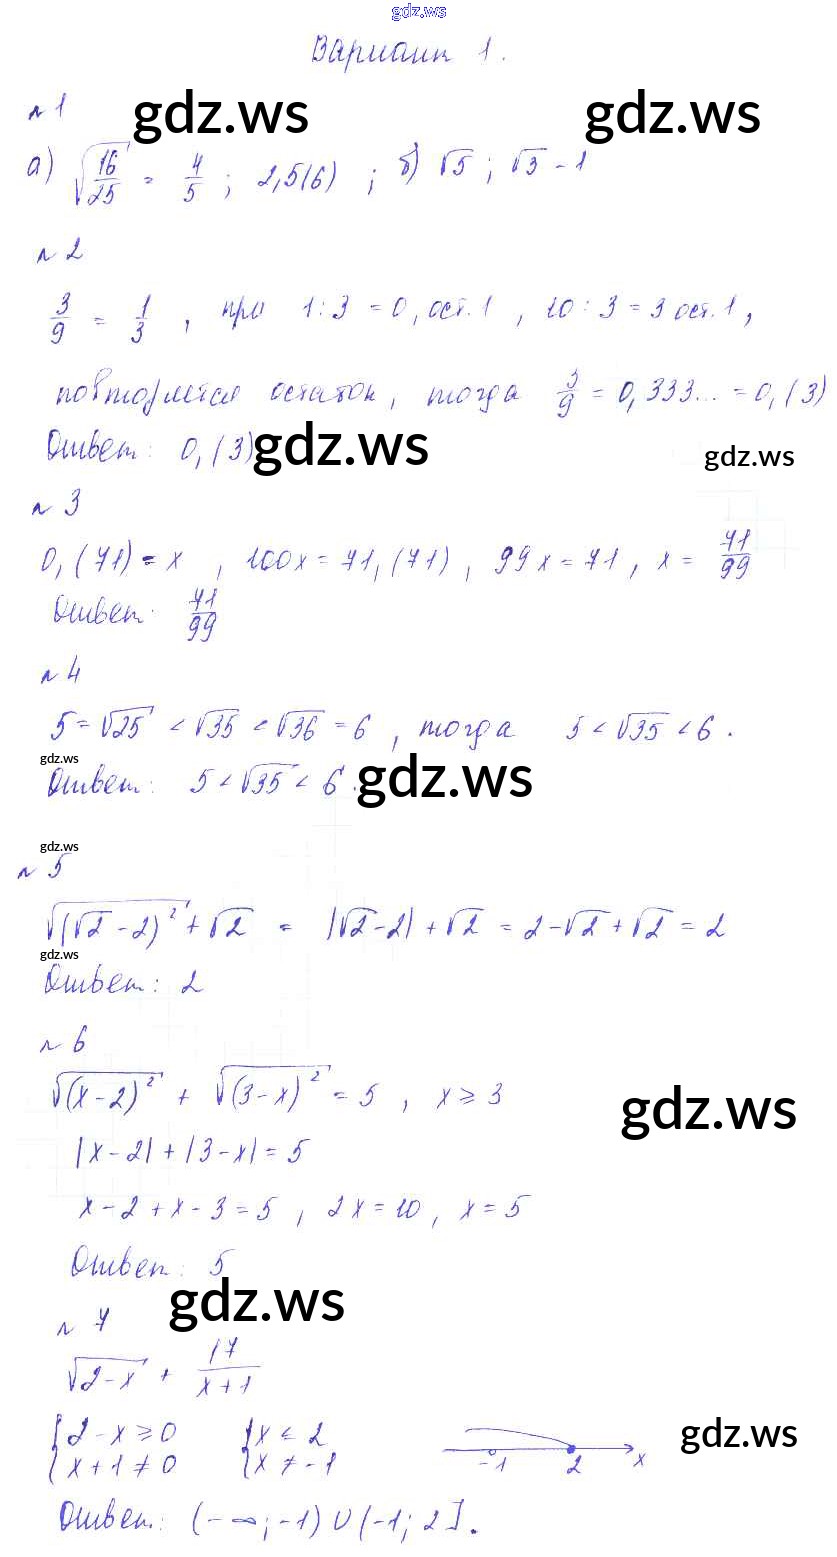 gdz.ws
Вариант 1.
n 1
gdz.ws gdz.ws
а) √(16/25) = 4/5 ; 2,5(6) ; б) √5 ; √3 - 1
n 2
3/9 = 1/3 , при 1:3 = 0, ост. 1 , 10:3 = 3 ост. 1,
повторяется остаток, тогда 3/9 = 0,333... = 0,(3)
Ответ: 0,(3)
gdz.ws gdz.ws
n 3
0,(71) = x , 100x = 71,(71) , 99x = 71 , x = 71/99
Ответ: 71/99
n 4
5 = √25 < √35 < √36 = 6 , тогда 5 < √35 < 6 .
gdz.ws
Ответ: 5 < √35 < 6 .
gdz.ws
gdz.ws
n 5
√((√2 - 2)²) + √2 = |√2 - 2| + √2 = 2 - √2 + √2 = 2
gdz.ws
Ответ: 2
n 6
√((x - 2)²) + √((3 - x)²) = 5 , x ≥ 3
gdz.ws
|x - 2| + |3 - x| = 5
x - 2 + x - 3 = 5 , 2x = 10 , x = 5
Ответ: 5
gdz.ws
n 7
√(2 - x) + 17/(x + 1)
{2 - x ≥ 0 {x ≤ 2
{x + 1 ≠ 0 {x ≠ -1
gdz.ws
-1 2 x
Ответ: (-∞; -1) ∪ (-1; 2].